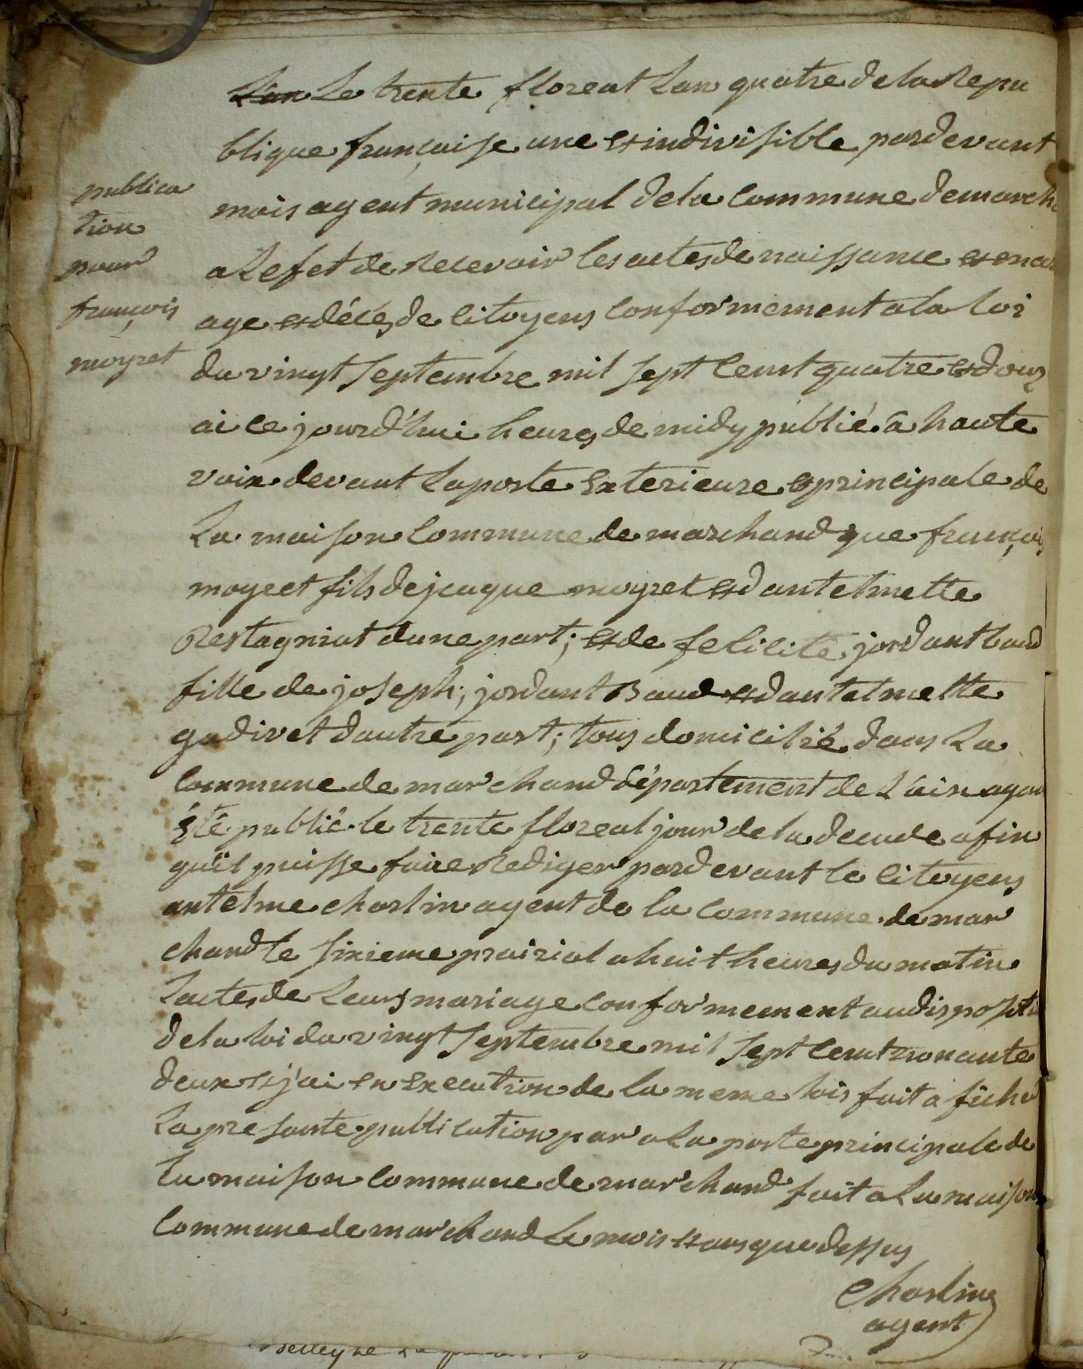 Le trente floreat Lan quatre de la Repu
blique française une et indivisible, pardevant
publica
tion
pour
françois
moyret
mois agent municipal de la Commune de march
a Lefet de Recevoir les actes de naissance et
age et décés de Citoyens Conformement a la Loi
du vingt Septembre mil sept Cent quatre et douz
ai ce jourd'hui heures de midy publié a haute
voix devant La porte Exterieure et principale de
La maison Commune de marchand que françois
moyret fils de jcaque moyret et dantelmette
Restagniat dune part; et de felicité jordant baud
fille de joseph; jordant Baud et dantelmette
gadivet dautre part; tous domicilié dans La
Commune de marchand département de L'ain ayan
été publié le trente floreal jour de la decade afin
quil puisse faire Rediger pardevant le Citoyens
antelme Charlin agent de la Commune de mar
chand le sixieme prairial a huit heures du matin
Lactes de Leurs mariage Conformement au
de la loi du vingt Septembre mil Sept Cent nonante
deux et j'ai en Execution de la meme lois fait afiche
La presante publication par a La porte principale de
La maison Commune de marchand fait a La maison
Commune de marchand Le mois et ans que dessus
Charlin
agent